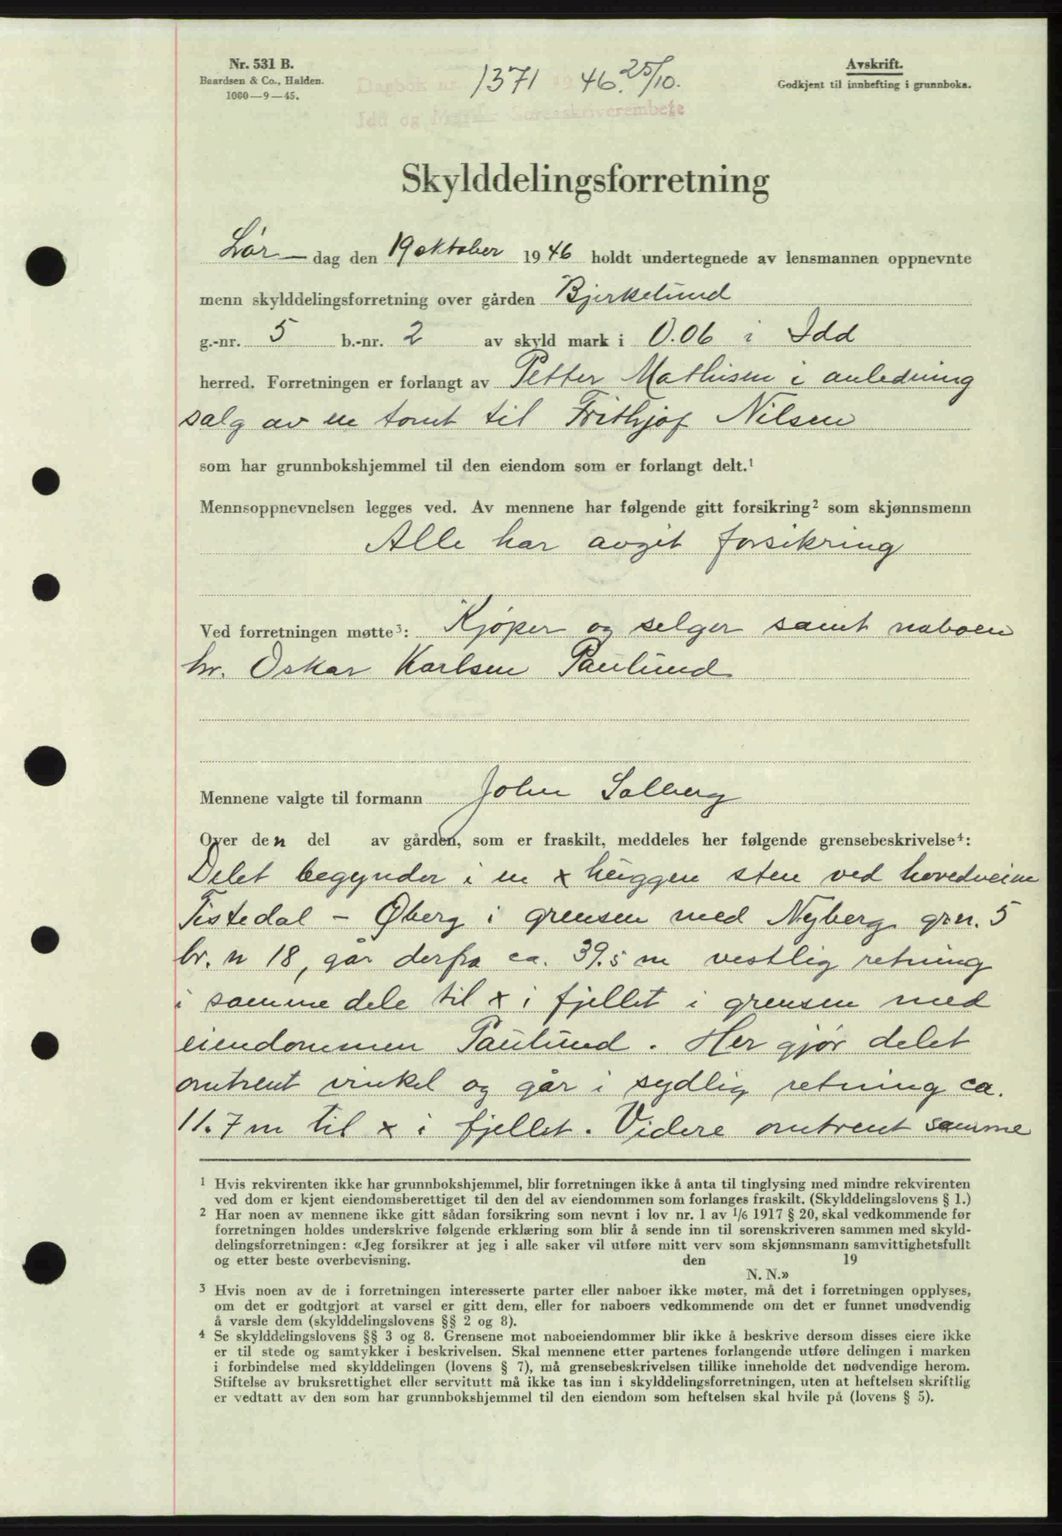 Nr. 531 B.
Baardsen & Co., Halden.
1000—9—45.
Dagbok nr. 1371 1946. 25/10.
Idd og Marker Sorenskriverembete
Avskrift.
Godkjent til innhefting i grunnboka.
Skylddelingsforretning
Lør— dag den 19 oktober 1946 holdt undertegnede av lensmannen oppnevnte
menn skylddelingsforretning over gården Bjerkelund
g.-nr. 5 b.-nr. 2 av skyld mark i 0.06 i Idd
herred. Forretningen er forlangt av Petter Mathisen i anledning
salg av en tomt til Frithjof Nilsen
som har grunnbokshjemmel til den eiendom som er forlangt delt.¹
Mennsoppnevnelsen legges ved. Av mennene har følgende gitt forsikring² som skjønnsmenn
Alle har avgit forsikring
Ved forretningen møtte³: Kjøper og selger samt naboen
hr. Oskar Karlsen Paulund
Mennene valgte til formann John Solberg
Over den del av gården, som er fraskilt, meddeles her følgende grensebeskrivelse⁴:
Delet begynder i en x huggen sten ved hovedveien
Tistedal – Øberg i grensen med Nyberg grn. 5
br. n 18, går derfra ca. 39.5 m vestlig retning
i samme dele til x i fjellet i grensen med
eiendommen Paulund. Her gjør delet
omtrent vinkel og går i sydlig retning ca.
11.7 m til x i fjellet. Videre omtrent samme
¹ Hvis rekvirenten ikke har grunnbokshjemmel, blir forretningen ikke å anta til tinglysing med mindre rekvirenten
ved dom er kjent eiendomsberettiget til den del av eiendommen som forlanges fraskilt. (Skylddelingslovens § 1.)
² Har noen av mennene ikke gitt sådan forsikring som nevnt i lov nr. 1 av 1/6 1917 § 20, skal vedkommende før
forretningen holdes underskrive følgende erklæring som blir å sende inn til sorenskriveren sammen med skyld-
delingsforretningen: «Jeg forsikrer at jeg i alle saker vil utføre mitt verv som skjønnsmann samvittighetsfullt
og etter beste overbevisning. den 19
N. N.»
³ Hvis noen av de i forretningen interesserte parter eller naboer ikke møter, må det i forretningen opplyses,
om det er godtgjort at varsel er gitt dem, eller for naboers vedkommende om det er funnet unødvendig
å varsle dem (skylddelingslovens §§ 2 og 8).
⁴ Se skylddelingslovens §§ 3 og 8. Grensene mot naboeiendommer blir ikke å beskrive dersom disses eiere ikke
er til stede og samtykker i beskrivelsen. Skal mennene etter partenes forlangende utføre delingen i marken
i forbindelse med skylddelingen (lovens § 7), må grensebeskrivelsen tillike inneholde det nødvendige herom.
Stiftelse av bruksrettighet eller servitutt må ikke tas inn i skylddelingsforretningen, uten at heftelsen skriftlig
er vedtatt av den som har grunnbokshjemmel til den eiendom som heftelsen skal hvile på (lovens § 5).